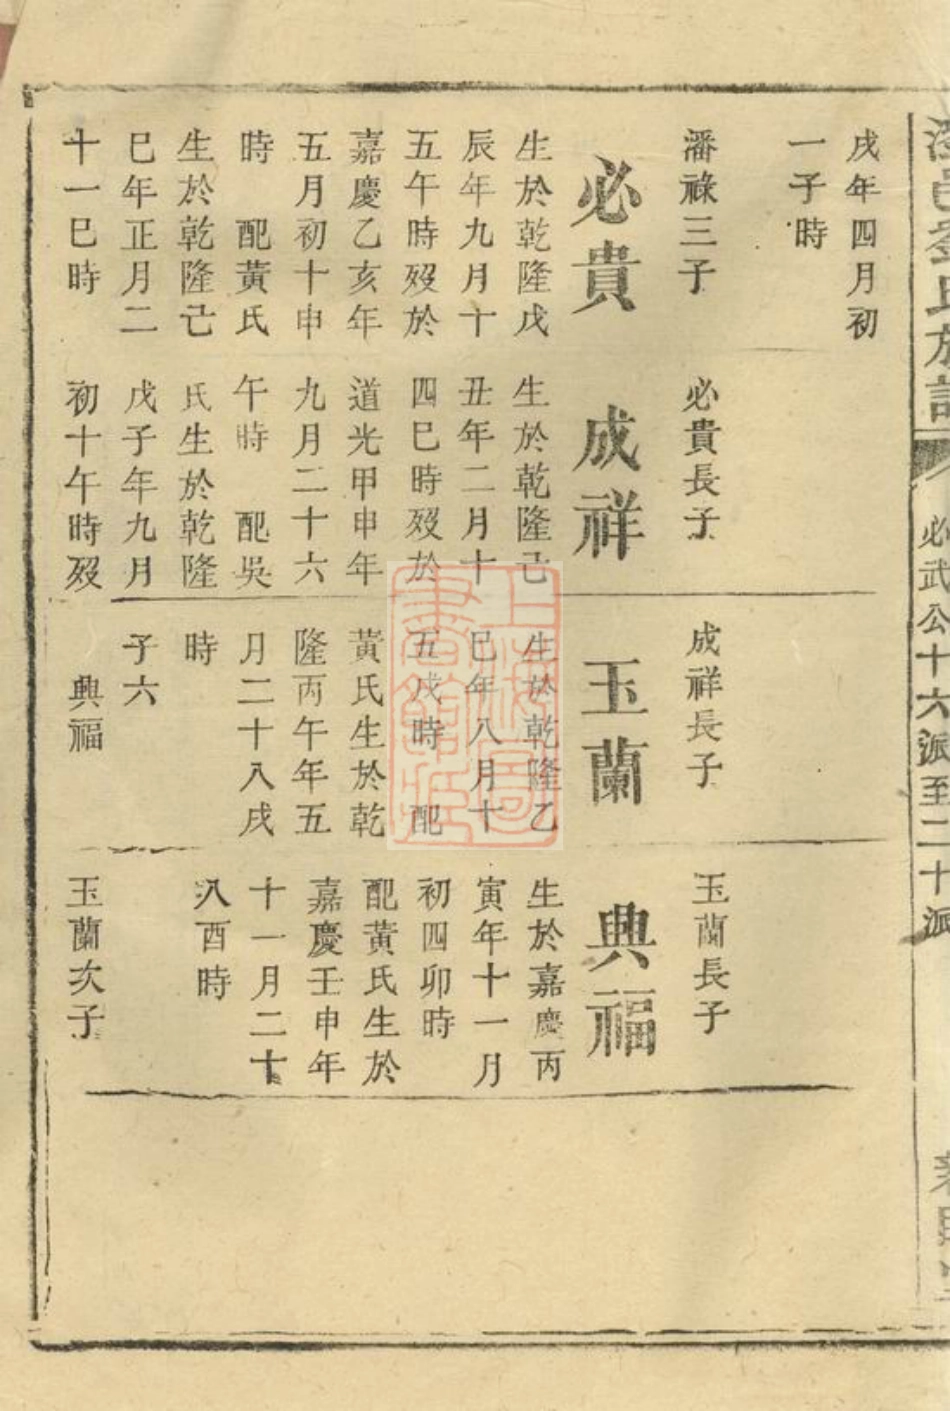 劉氏族譜
必武公十六派至二十派
戌年四月初
一子時
潘祿三子
必貴
生於乾隆戊
辰年九月十
五午時歿於
嘉慶乙亥年
五月初十申
時 配黃氏
生於乾隆己
巳年正月二
十一巳時
必貴長子
成祥
生於乾隆己
丑年二月十
四巳時歿於
道光甲申年
九月二十六
午時 配吳
氏生於乾隆
戊子年九月
初十午時歿
成祥長子
玉蘭
生於乾隆乙
巳年八月十
五戌時 配
黃氏生於乾
隆丙午年五
月二十八戌
時
子六
興福
玉蘭長子
典福
生於嘉慶丙
寅年十一月
初四卯時
配黃氏生於
嘉慶壬申年
十一月二十
八酉時
玉蘭次子
上海圖
書館藏